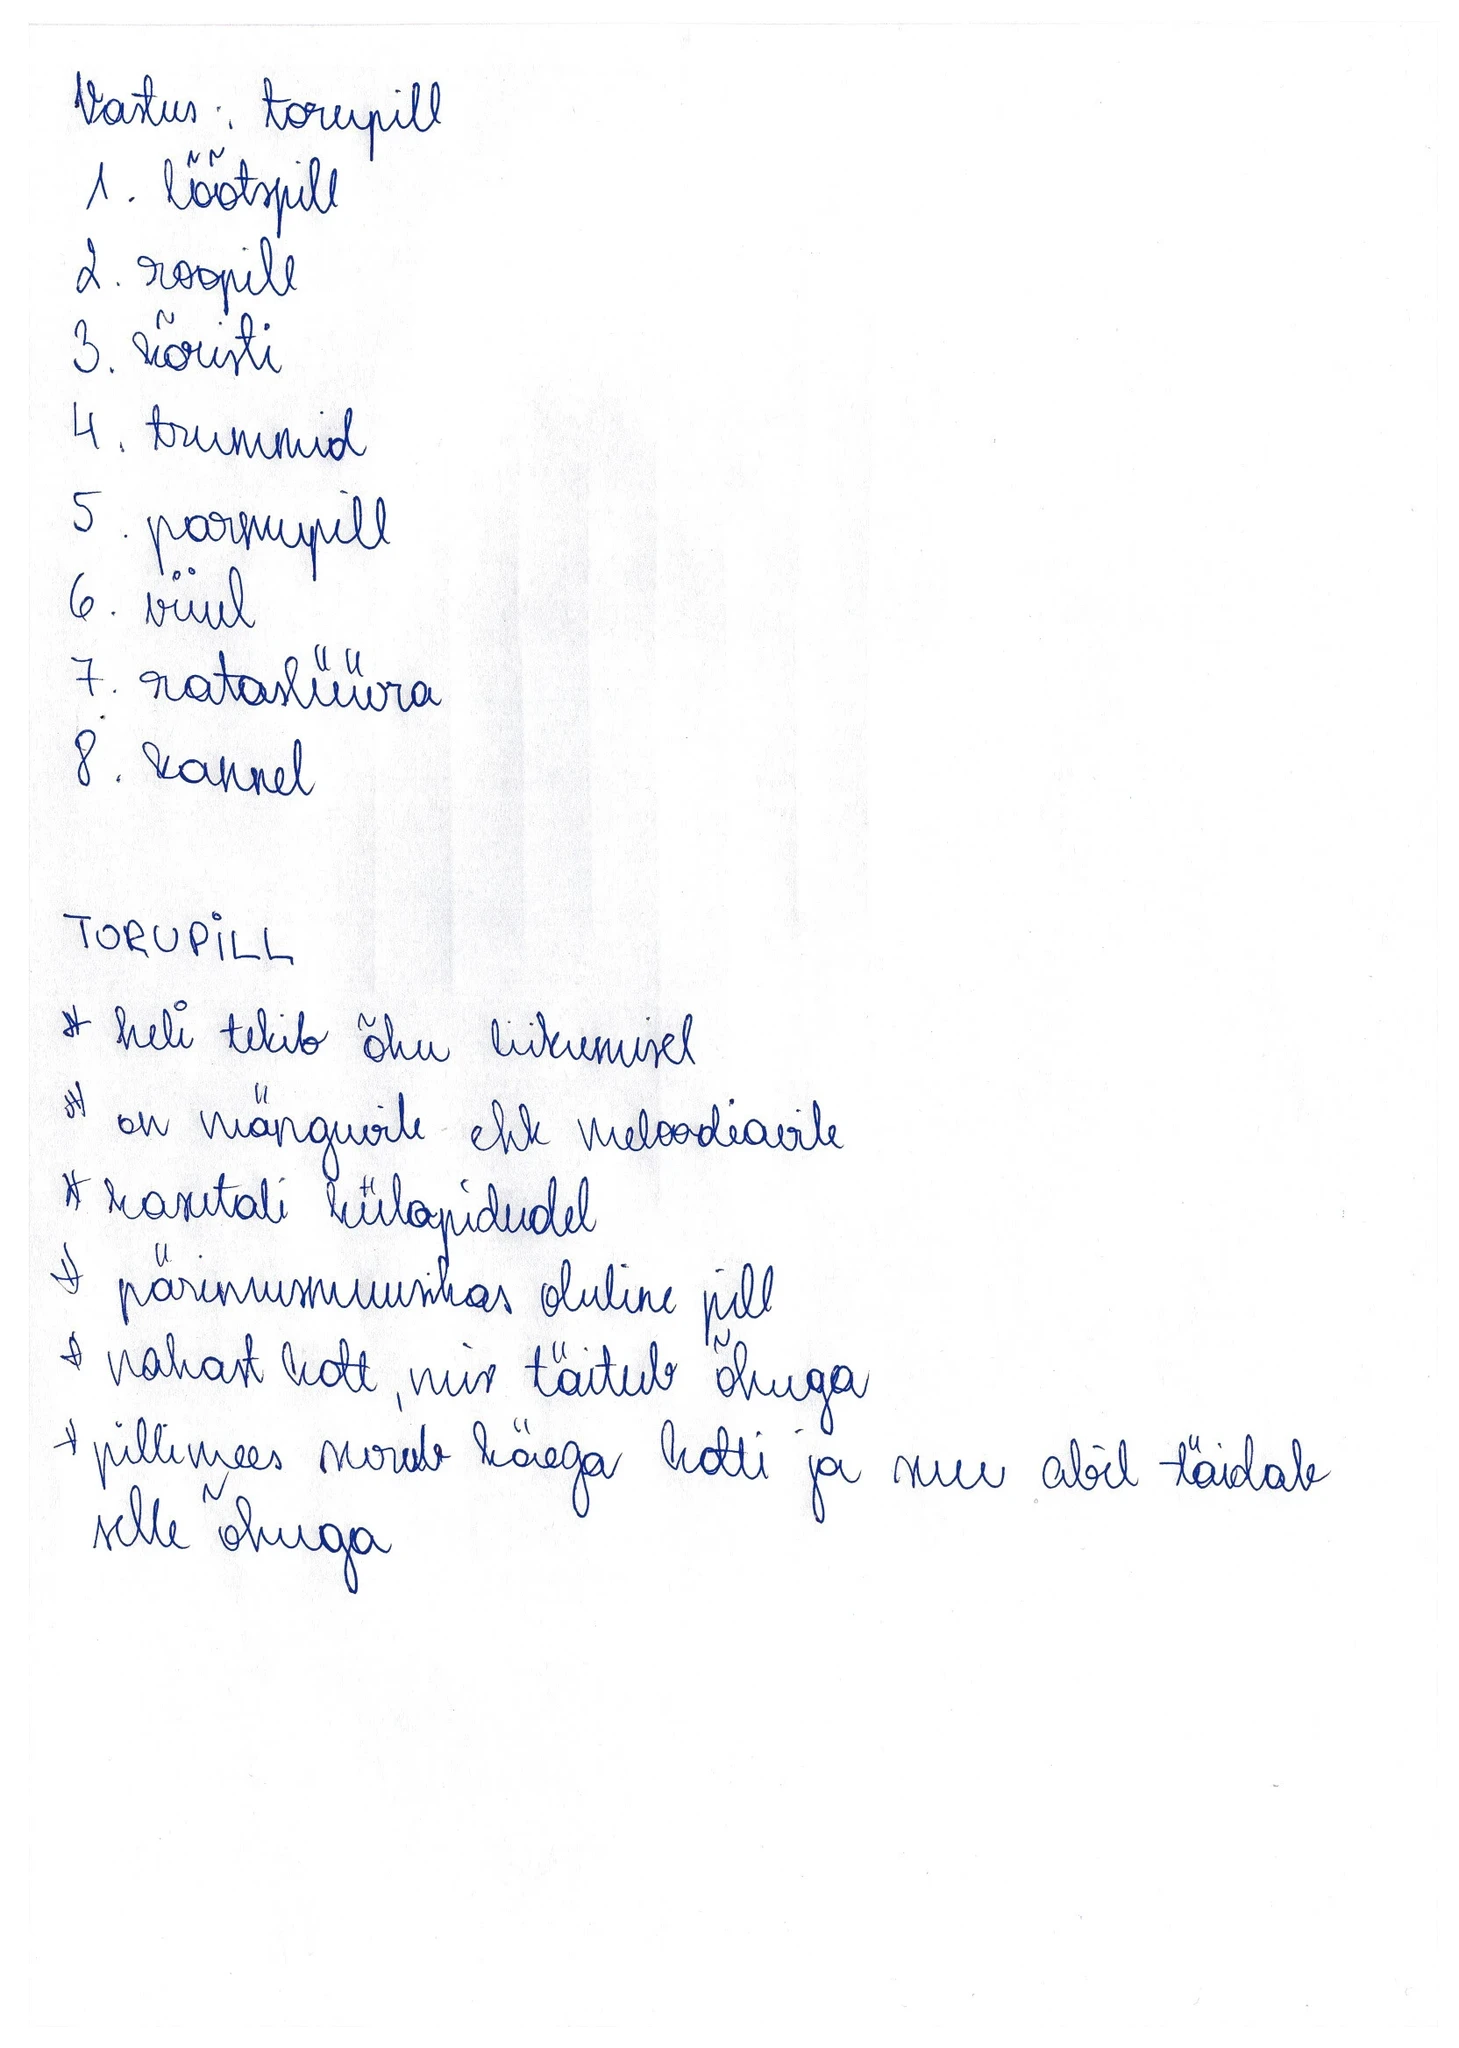 Vastus: torupill
1. lõõtspill
2. roopill
3. kõristi
4. trummid
5. parmupill
6. viiul
7. rataslüüra
8. kannel
TORUPILL
* heli tekib õhu liikumisel
* on mänguvile ehk meloodiavile
* kasutati külapidudel
* pärimusmuusikas oluline pill
* nahast kott, mis täitub õhuga
* pillimees surub käega kotti ja suu abil täidab
selle õhuga